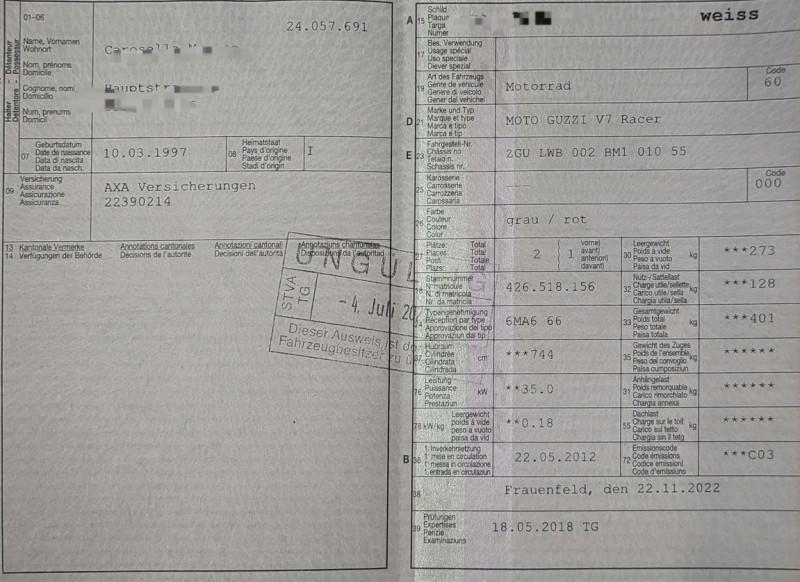 01-06
24.057.691
Detenteur Possessur
Halter Detentore
Name, Vornamen
Wohnort
Nom, prénoms
Domicile
Cognome, nomi
Domicilio
Num, prenums
Domicil
Hauptst
07 Geburtsdatum
Date de naissance
Data di nascita
Data da nasch.
10.03.1997
08 Heimatstaat
Pays d'origine
Paese d'origine
Stadi d'origin
I
09 Versicherung
Assurance
Assicurazione
Assicuranza
AXA Versicherungen
22390214
13 Kantonale Vermerke Annotations cantonales Annotazioni cantonali Annotaziuns chantunalas
14 Verfügungen der Behörde Décisions de l'autorité Decisioni dell'autorità
UNGÜL
STVA TG
-4. Juli 20
Dieser Ausweis ist de
Fahrzeugbesitzer zu
A 15 Schild
Plaque
Targa
Numer
weiss
17 Bes. Verwendung
Usage spécial
Uso speciale
Diever spezial
19 Art des Fahrzeugs
Genre de véhicule
Genere di veicolo
Gener dal vehichel
Motorrad
Code
60
D 21 Marke und Typ
Marque et type
Marca e tipo
Marca e tip
MOTO GUZZI V7 Racer
E 23 Fahrgestell-Nr.
Châssis no
Telaio n.
Schassis nr.
ZGU LWB 002 BM1 010 55
25 Karosserie
Carrosserie
Carrozzeria
Carossaria
Code
000
26 Farbe
Couleur
Colore
Color
grau / rot
27 Plätze: Total
Places: Total
Posti: Totale
Plazs: Total
2 ( 1 vorne)
avant)
anteriori)
davant)
30 Leergewicht
Poids à vide
Peso a vuoto
Paisa da vid
kg
***273
18 Stammnummer
N matricule
N. di matricola
Nr. da matricla
426.518.156
32 Nutz-/Sattellast
Charge utile/sellette
Carico utile/sella
Chargia utila/sella
kg
***128
24 Typengenehmigung
Réception par type
Approvazione del tipo
Approvaziun dal tip
6MA6 66
33 Gesamtgewicht
Poids total
Peso totale
Paisa totala
kg
***401
37 Hubraum
Cylindrée
Cilindrata
Cilindrada
cm
***744
35 Gewicht des Zuges
Poids de l'ensemble
Peso del convoglio
Paisa cumposiziun
kg
******
76 Leistung
Puissance
Potenza
Prestaziun
kW
**35.0
31 Anhängelast
Poids remorquable
Carico rimorchiato
Chargia annexa
kg
******
78 kW/kg Leergewicht
poids à vide
peso a vuoto
paisa da vid
**0.18
55 Dachlast
Charge sur le toit
Carico sul tetto
Chargia sin il tetg
kg
******
B 36 1. Inverkehrsetzung
1 mise en circulation
1 messa in circolazione
1. entrada en circulaziun
22.05.2012
72 Emissionscode
Code émissions
Codice emissioni
Code d'emissiuns
***C03
38
Frauenfeld, den 22.11.2022
39 Prüfungen
Expertises
Perizie
Examinaziuns
18.05.2018 TG